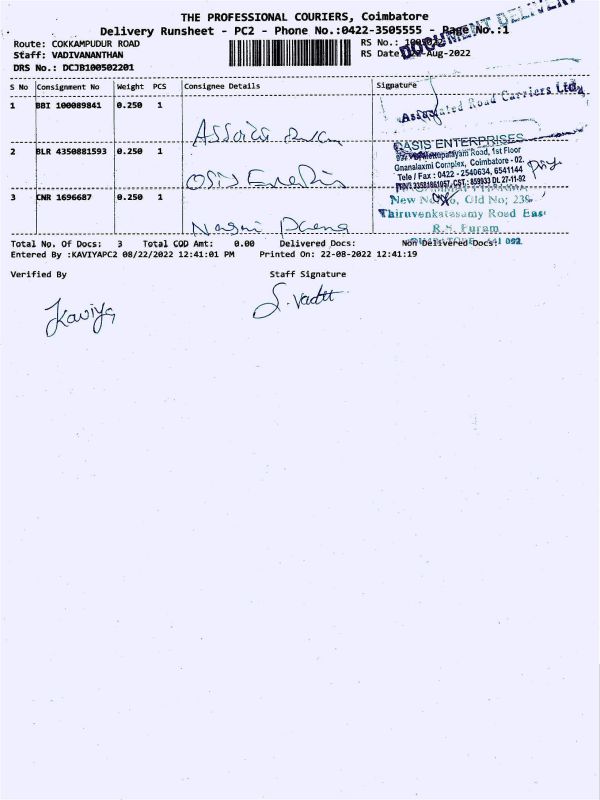 THE PROFESSIONAL COURIERS, Coimbatore
Delivery Runsheet - PC2 - Phone No.:0422-3505555 - Page No.:1
DOCUMENT DELIVERY
Route: COKKAMPUDUR ROAD
RS No.:
Staff: VADIVANANTHAN
RS Date: -Aug-2022
DRS No.: DCJB100502201
S No Consignment No Weight PCS Consignee Details Signature
1 BBI 100089841 0.250 1
Associated Road Carriers Ltd.
2 BLR 4350881593 0.250 1
OASIS ENTERPRISES
Mettupalayam Road, 1st Floor
Gnanalaxmi Complex, Coimbatore - 02.
Tele / Fax : 0422 - 2540634, 6541144
3 CNR 1696687 0.250 1
New No, Old No; 238,
Thiruvenkatasamy Road East
R.S. Puram
Total No. Of Docs: 3 Total COD Amt: 0.00 Delivered Docs: Non Delivered Docs:
Entered By :KAVIYAPC2 08/22/2022 12:41:01 PM Printed On: 22-08-2022 12:41:19
Verified By Staff Signature
Kaviya S. Vadit